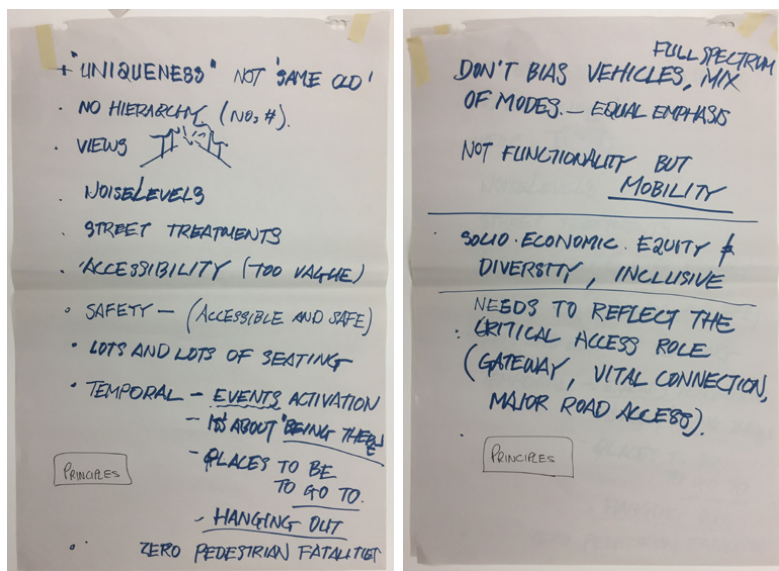 + "UNIQUENESS" NOT 'SAME OLD'
· NO HIERARCHY (NO, #).
· VIEWS
· NOISE LEVELS
· STREET TREATMENTS
· 'ACCESSIBILITY (TOO VAGUE)
· SAFETY — (ACCESSIBLE AND SAFE)
· LOTS AND LOTS OF SEATING
· TEMPORAL — EVENTS ACTIVATION
— IT'S ABOUT 'BEING THERE'
- PLACES TO BE
TO GO TO.
- HANGING OUT
PRINCIPLES
· ZERO PEDESTRIAN FATALITIES
FULL SPECTRUM
DON'T BIAS VEHICLES, MIX
OF MODES. — EQUAL EMPHASIS
NOT FUNCTIONALITY BUT
MOBILITY
· SOCIO-ECONOMIC EQUITY &
DIVERSITY, INCLUSIVE
NEEDS TO REFLECT THE
: CRITICAL ACCESS ROLE
(GATEWAY, VITAL CONNECTION,
MAJOR ROAD ACCESS).
PRINCIPLES